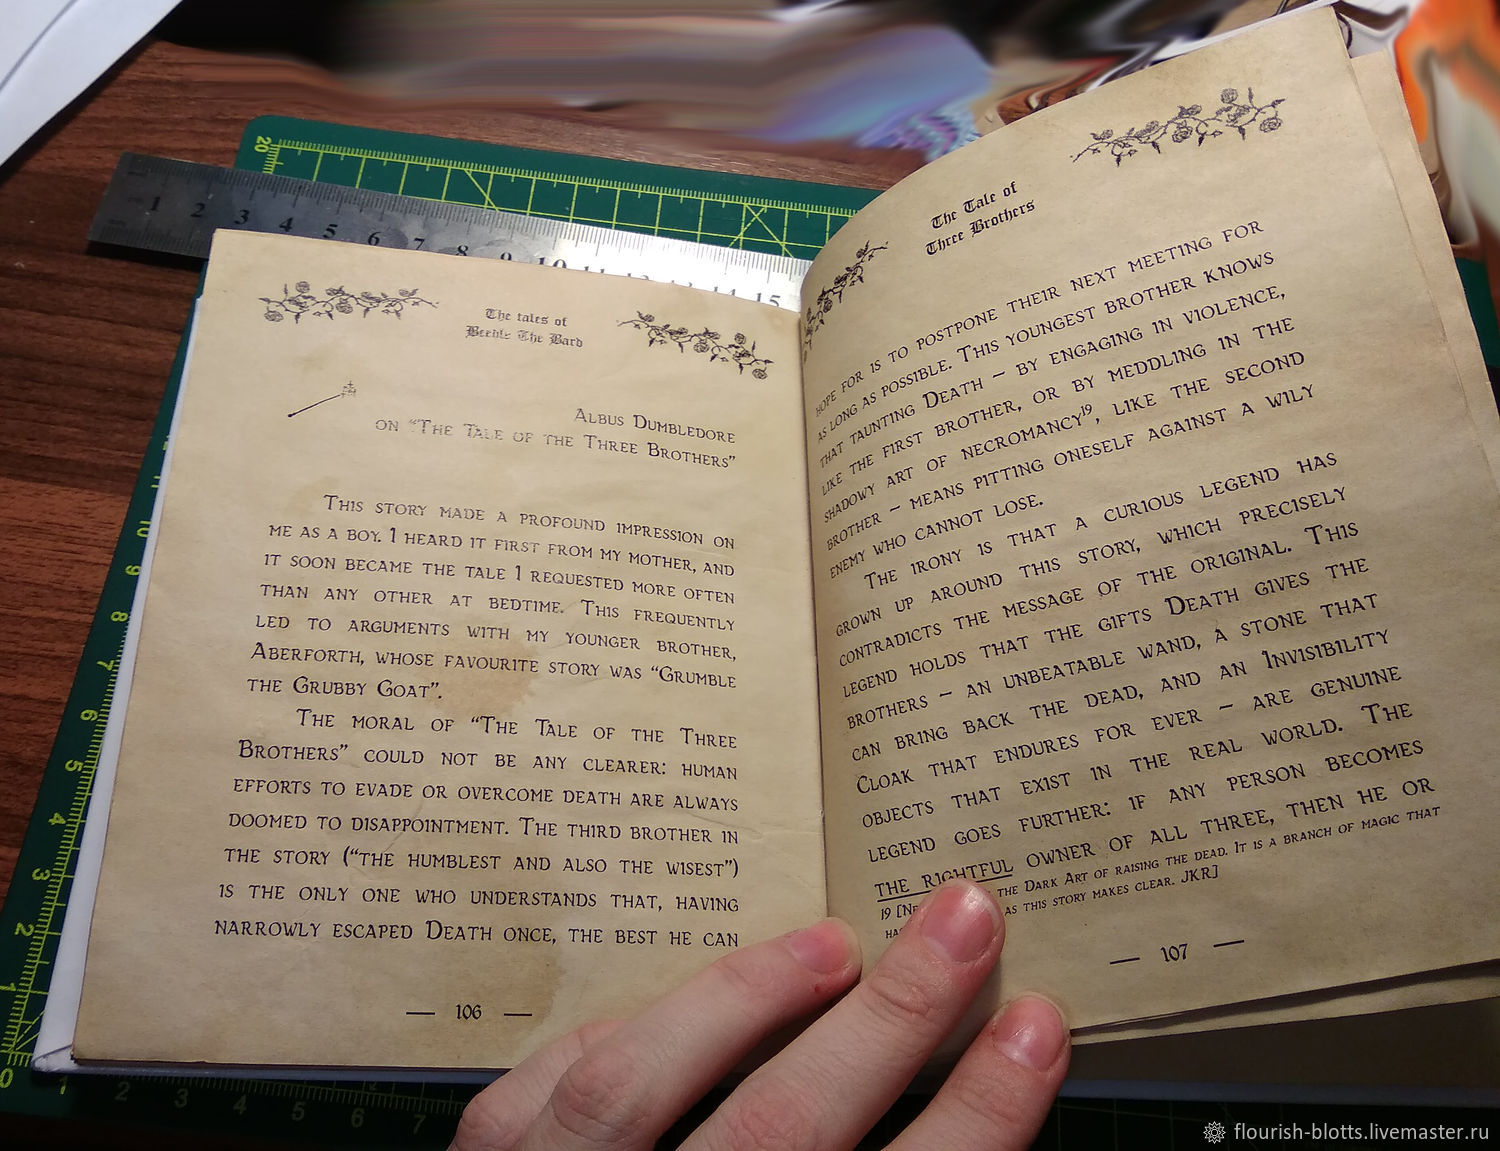 The tales of
Beedle The Bard
Albus Dumbledore
on "The Tale of the Three Brothers"
This story made a profound impression on
me as a boy. I heard it first from my mother, and
it soon became the tale I requested more often
than any other at bedtime. This frequently
led to arguments with my younger brother,
Aberforth, whose favourite story was "Grumble
the Grubby Goat".
The moral of "The Tale of the Three
Brothers" could not be any clearer: human
efforts to evade or overcome death are always
doomed to disappointment. The third brother in
the story ("the humblest and also the wisest")
is the only one who understands that, having
narrowly escaped Death once, the best he can
— 106 —
The Tale of
Three Brothers
hope for is to postpone their next meeting for
as long as possible. This youngest brother knows
that taunting Death – by engaging in violence,
like the first brother, or by meddling in the
shadowy art of necromancy19, like the second
brother – means pitting oneself against a wily
enemy who cannot lose.
The irony is that a curious legend has
grown up around this story, which precisely
contradicts the message of the original. This
legend holds that the gifts Death gives the
brothers – an unbeatable wand, a stone that
can bring back the dead, and an Invisibility
Cloak that endures for ever – are genuine
objects that exist in the real world. The
legend goes further: if any person becomes
the rightful owner of all three, then he or
19 the Dark Art of raising the dead. It is a branch of magic that
as this story makes clear. JKR]
— 107 —
20
1 2 3 4 5 6 7 8 9 10 11 12 13 14 15
10
9
8
7
6
5
4
3
2
1
0
1 2 3 4 5 6 7
flourish-blotts.livemaster.ru